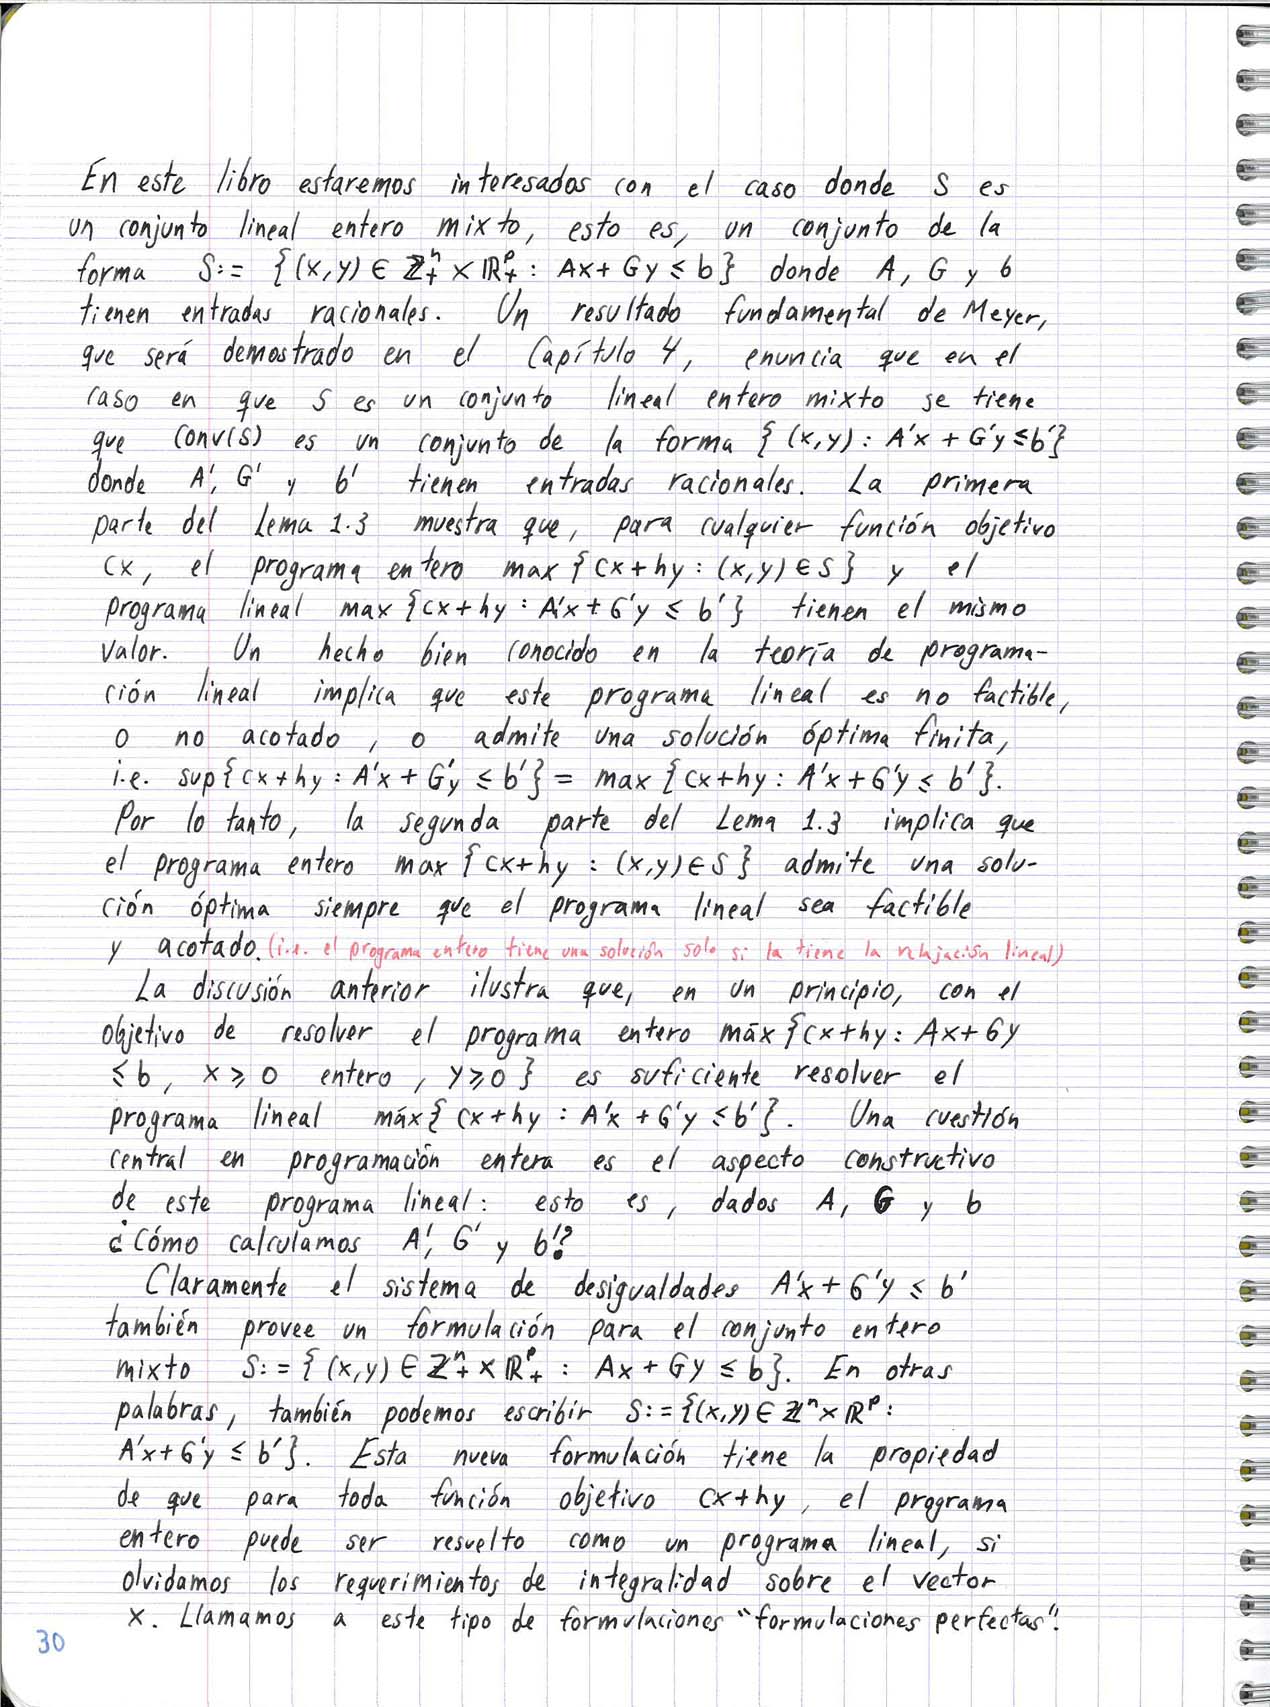 En este libro estaremos interesados con el caso donde S es
un conjunto lineal entero mixto, esto es, un conjunto de la
forma S:= {(x,y) ∈ ℤ₊ⁿ × ℝ₊ᵖ : Ax + Gy ≤ b} donde A, G y b
tienen entradas racionales. Un resultado fundamental de Meyer,
que será demostrado en el Capítulo 4, enuncia que en el
caso en que S es un conjunto lineal entero mixto se tiene
que conv(S) es un conjunto de la forma {(x,y) : A'x + G'y ≤ b'}
donde A', G' y b' tienen entradas racionales. La primera
parte del Lema 1.3 muestra que, para cualquier función objetivo
cx, el programa entero max {cx+hy : (x,y) ∈ S} y el
programa lineal max {cx+hy : A'x + G'y ≤ b'} tienen el mismo
valor. Un hecho bien conocido en la teoría de programa-
ción lineal implica que este programa lineal es no factible,
o no acotado, o admite una solución óptima finita,
i.e. sup{cx+hy : A'x + G'y ≤ b'} = max {cx+hy : A'x + G'y ≤ b'}.
Por lo tanto, la segunda parte del Lema 1.3 implica que
el programa entero max {cx+hy : (x,y) ∈ S} admite una solu-
ción óptima siempre que el programa lineal sea factible
y acotado. (i.e. el programa entero tiene una solución solo si la tiene la relajación lineal)
La discusión anterior ilustra que, en un principio, con el
objetivo de resolver el programa entero máx {cx+hy : Ax+Gy
≤ b, x ≥ 0 entero, y ≥ 0} es suficiente resolver el
programa lineal máx{cx+hy : A'x + G'y ≤ b'}. Una cuestión
central en programación entera es el aspecto constructivo
de este programa lineal: esto es, dados A, G y b
¿Cómo calculamos A', G' y b'?
Claramente el sistema de desigualdades A'x + G'y ≤ b'
también provee un formulación para el conjunto entero
mixto S:= {(x,y) ∈ ℤ₊ⁿ × ℝ₊ᵖ : Ax + Gy ≤ b}. En otras
palabras, también podemos escribir S:= {(x,y) ∈ ℤⁿ × ℝᵖ :
A'x + G'y ≤ b'}. Esta nueva formulación tiene la propiedad
de que para toda función objetivo cx+hy, el programa
entero puede ser resuelto como un programa lineal, si
olvidamos los requerimientos de integralidad sobre el vector
x. Llamamos a este tipo de formulaciones "formulaciones perfectas".
30